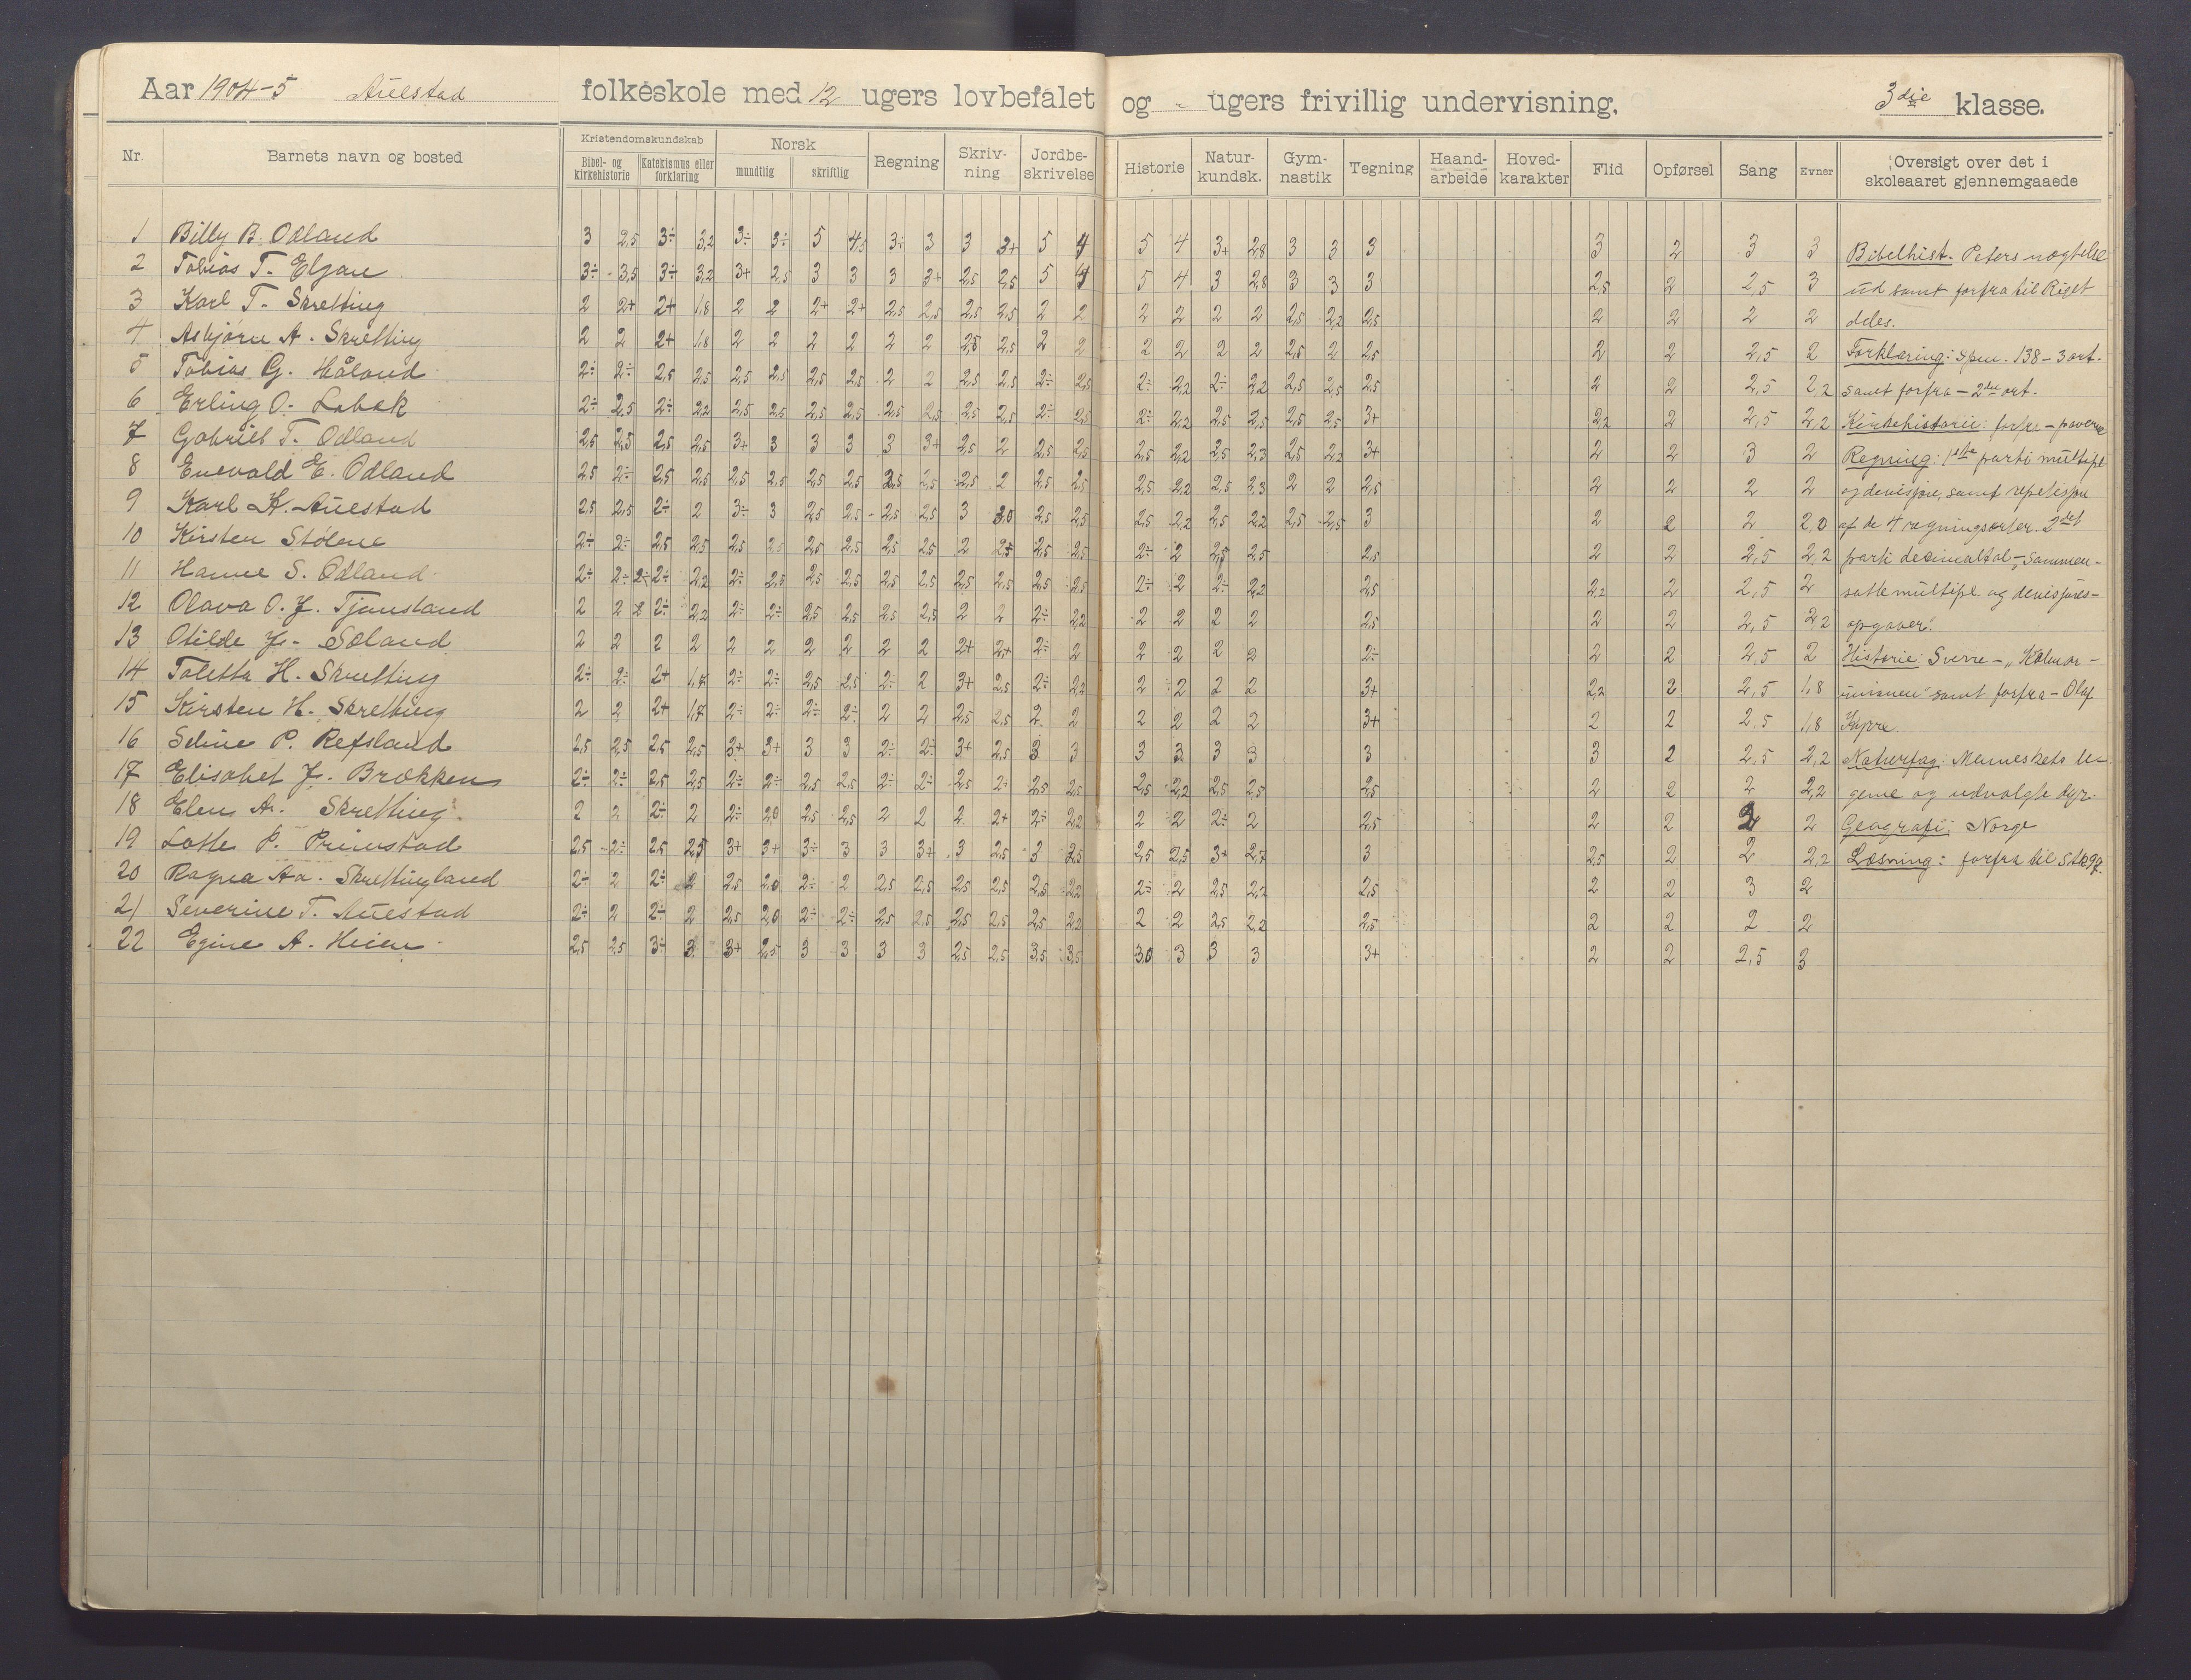 Aar 1904-5 Auestad folkeskole med 12 ugers lovbefalet og - ugers frivillig undervisning. 3die klasse.
Nr. Barnets navn og bosted Kristendomskundskab Norsk Regning Skriv-ning Jordbe-skrivelse Historie Natur-kundsk. Gym-nastik Tegning Haand-arbeide Hoved-karakter Flid Opførsel Sang Evner Oversigt over det i skoleaaret gjennemgaaede
Bibel- og kirkehistorie Katekismus eller forklaring mundtlig skriftlig
1 Billy B. Odland 3 2,5 3÷ 3,2 3÷ 3÷ 5 4,5 3÷ 3 3 3+ 5 4 5 4 3+ 2,8 3 3 3 3 2 3 3
2 Tobias T. Elgan 3÷ 3,5 3÷ 3,2 3+ 2,5 3 3 3 3+ 2,5 2,5 5 4 5 4 3 2,8 3 3 3 2,5 2 2,5 3
3 Karl T. Skretting 2 2+ 2+ 1,8 2 2 2+ 2+ 2,5 2,5 2,5 2,5 2 2 2 2 2 2 2,5 2,2 2,5 2 2 2 2
4 Asbjørn A. Skretting 2 2 2+ 1,8 2 2 2 2 2 2 2,5 2,5 2 2 2 2 2 2 2,5 2 2,5 2 2 2,5 2
5 Tobias G. Håland 2÷ 2÷ 2,5 2,5 2,5 2,5 2,5 2,5 2 2 2,5 2,5 2÷ 2,5 2÷ 2,2 2÷ 2,2 2,5 2,5 2,5 2 2 2,5 2,2
6 Erling O. Lobek 2÷ 2,5 2÷ 2,2 2,5 2,5 2,5 2,5 2,5 2,5 2,5 2,5 2÷ 2,5 2÷ 2,2 2,5 2,5 2,5 2,5 3+ 2,2 2 2,5 2,2
7 Gabriel T. Odland 2,5 2,5 2,5 2,5 3+ 3 3 3 3 3+ 2,5 2 2,5 2,5 2,5 2,2 2,5 2,3 2,5 2,2 3+ 2 2 3 2
8 Enevald E. Odland 2,5 2÷ 2,5 2,5 2,5 2,5 2,5 2,5 2,5 2,5 2,5 2 2,5 2,5 2,5 2,2 2,5 2,3 2 2 2,5 2 2 2 2
9 Karl K. Auestad 2,5 2,5 2÷ 2 3÷ 3 2,5 2,5 2,5 2,5 3 3,0 2,5 2,5 2,5 2,2 2,5 2,2 2,5 2,5 3 2 2 2 2,0
10 Kirsten Stølene 2÷ 2÷ 2,5 2,5 2,5 2,5 2,5 2,5 2,5 2,5 2 2,5 2,5 2,5 2÷ 2 2,5 2,5 2,5 2 2 2,5 2,2
11 Hanne S. Odland 2÷ 2÷ 2÷ 2÷ 2,2 2÷ 2,5 2,5 2,5 2,5 2,5 2,5 2,5 2,5 2,5 2÷ 2 2÷ 2,2 2,5 2,2 2 2,5 2
12 Olava O. J. Tjensland 2 2 2 2÷ 2,2 2÷ 2÷ 2,5 2,5 2,5 2,5 2 2 2÷ 2,2 2 2 2 2 2,5 2 2 2,5 2,2
13 Otilde J. Søland 2 2 2 2 2 2 2 2 2 2 2+ 2+ 2÷ 2 2 2 2 2 2÷ 2 2 2,5 2
14 Toletta H. Skretting 2÷ 2÷ 2+ 1,7 2÷ 2÷ 2,5 2,5 2÷ 2 3+ 2,5 2÷ 2,2 2 2 2 2 3+ 2,2 2 2,5 1,8
15 Kirsten H. Skretting 2 2 2+ 1,7 2÷ 2÷ 2÷ 2÷ 2 2 2,5 2,5 2 2 2 2 2 2 3+ 2 2 2,5 1,8
16 Seline P. Refsland 2,5 2,5 2,5 2,5 3+ 3+ 3 3 2÷ 2÷ 3+ 2,5 3 3 3 3 3 3 3 3 2 2,5 2,2
17 Elisabet J. Brækken 2÷ 2÷ 2,5 2,5 2÷ 2÷ 2,5 2,5 2÷ 2÷ 2,5 2÷ 2,5 2,5 2,5 2,2 2,5 2,5 2,5 2 2 2 2,2
18 Elen A. Skretting 2 2 2÷ 2 2÷ 2,0 2,5 2,5 2 2 2 2+ 2÷ 2,2 2 2 2÷ 2 2,5 2 2 2 2
19 Lotte P. Primstad 2,5 2÷ 2,5 2,5 3+ 3+ 3÷ 3 3 3+ 3 2,5 3 2,5 2,5 2,5 3+ 2,7 3 2,5 2 2 2,2
20 Ragna Aa. Skrettingland 2÷ 2 2÷ 2 2,5 2,0 2÷ 2 2,5 2,5 2,5 2,5 2,5 2,2 2÷ 2 2,5 2,2 2,5 2 2 3 2
21 Severine T. Auestad 2÷ 2 2÷ 2 2,5 2,0 2÷ 2÷ 2,5 2,5 2,5 2,5 2,5 2,2 2 2 2,5 2,2 2,5 2 2 2 2
22 Egine A. Heien 2,5 2,5 3÷ 3 3+ 2,5 3 3 3 3 2,5 2,5 3,5 3,5 3,0 3 3 3 3+ 2 2 2,5 3
Bibelhist. Peters nægtelse
ud samt forfra til Riget
deles.
Forklaring: Spm. 138 - 3 art.
samt forfra - 2den art.
Kirkehistorie: forfra - paverne
Regning: 1ste parti multipl
og devisjon, samt repetisjon
af de 4 regningsarter. 2det
parti decimaltal - Sammen-
satte multipl. og devisjons-
opgaver.
Historie: Sverre - "Kalmar-
unionen" samt forfra - Olaf
Kyrre.
Naturfag: Menneskets le-
geme og udvalgte dyr.
Geografi: Norge
Læsning: forfra til st. 97.